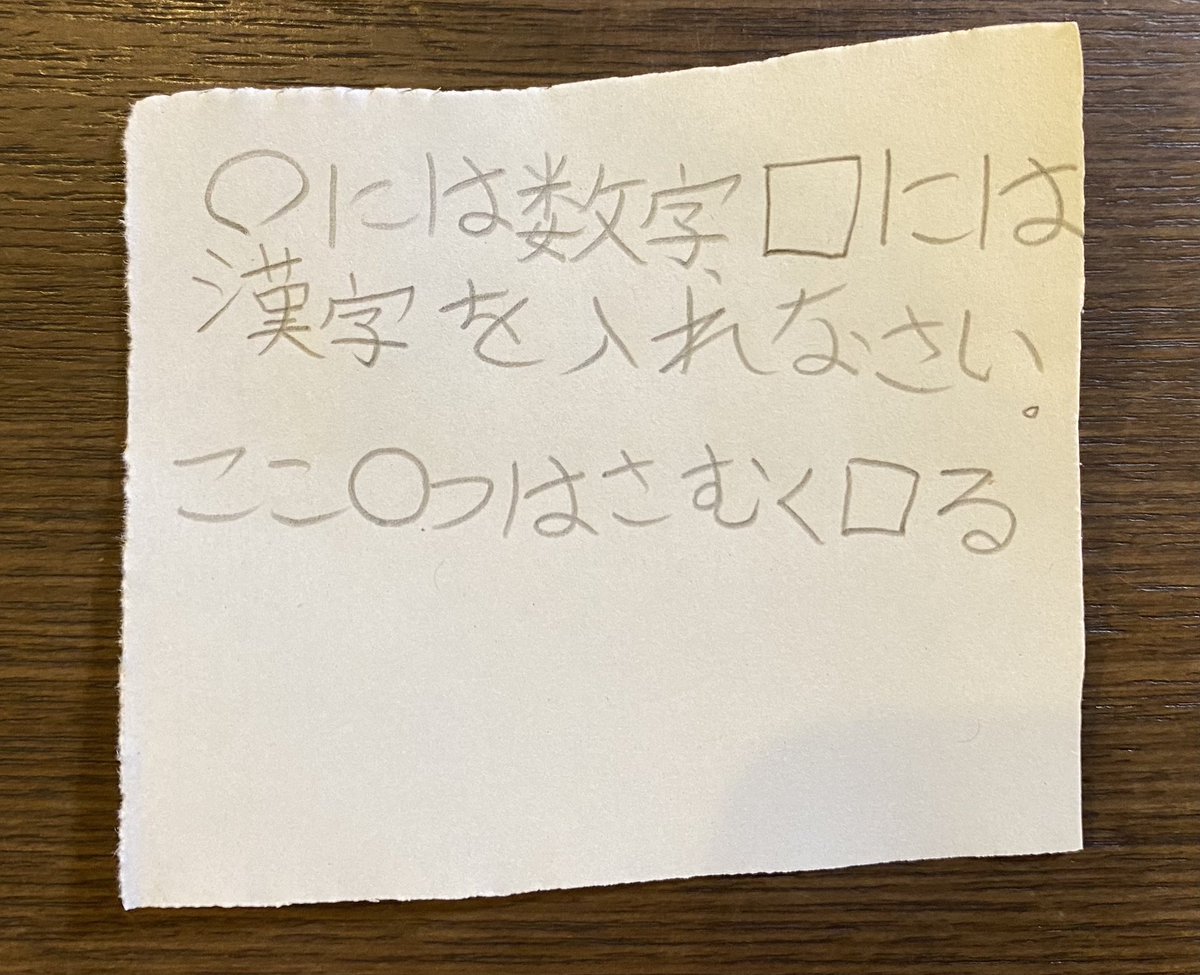 ○には数字、□には
漢字を入れなさい。
ここ○つはさむく□る